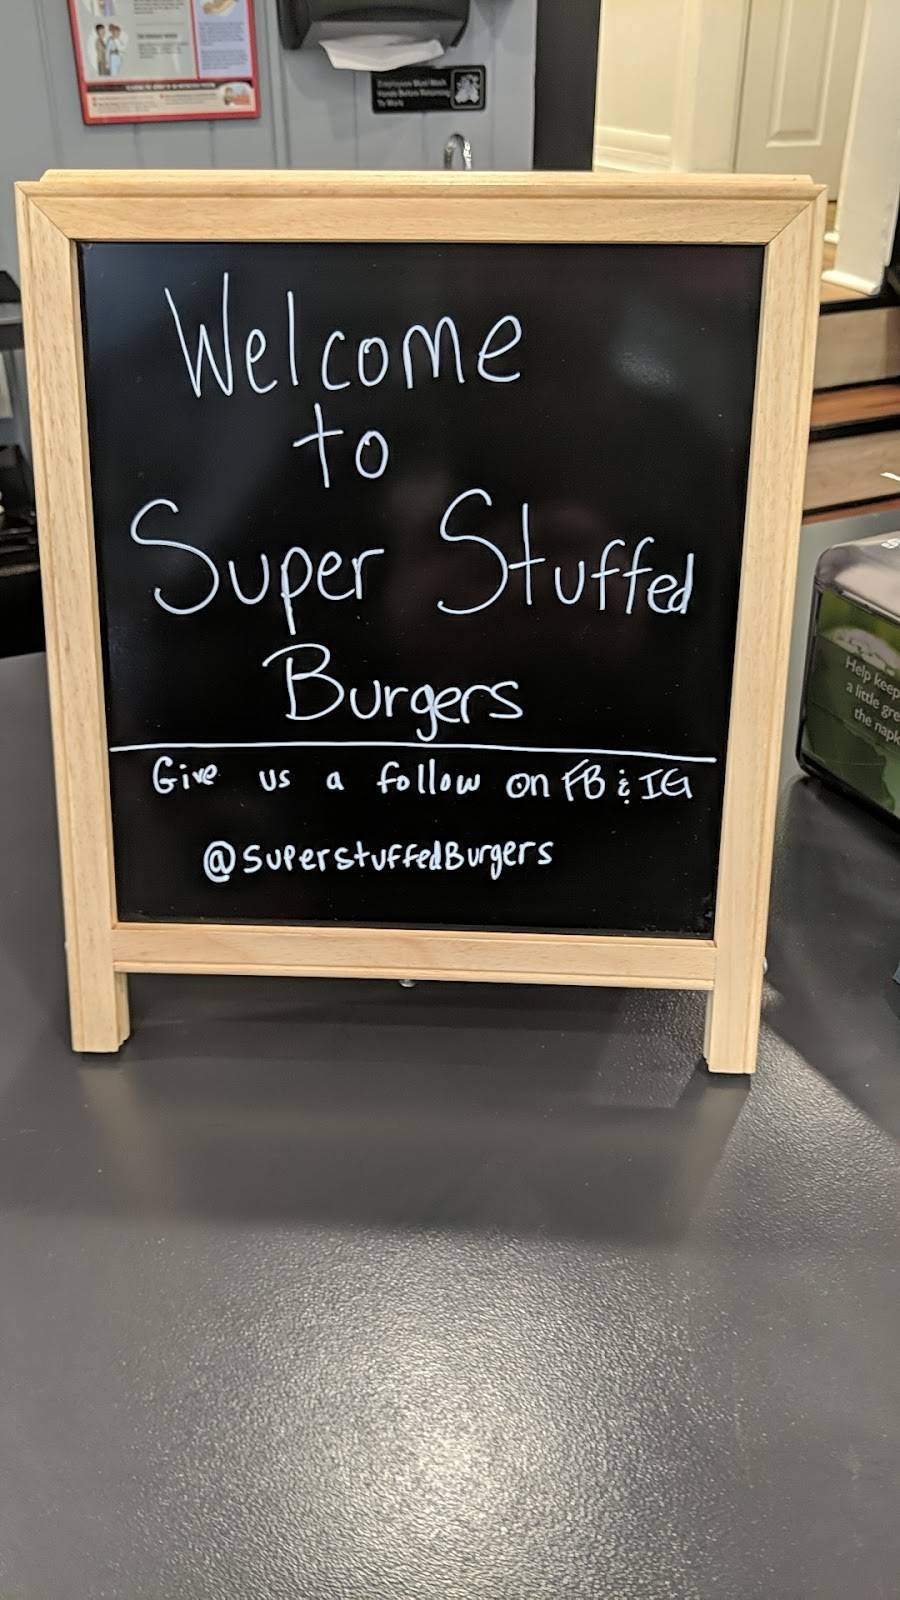 Employees Must Wash
Hands Before Returning
To Work
Welcome
to
Super Stuffed
Burgers
Give us a follow on FB & IG
@SuperstuffedBurgers
Help keep
a little gre
the napk